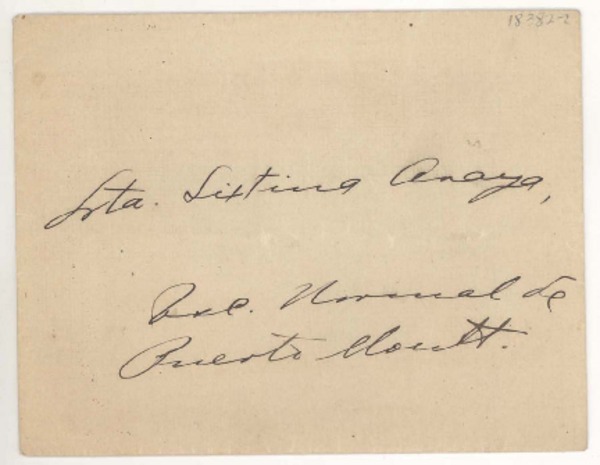 18382-2
Srta. Sixtina Araya,
Esc. Normal de
Puerto Montt.